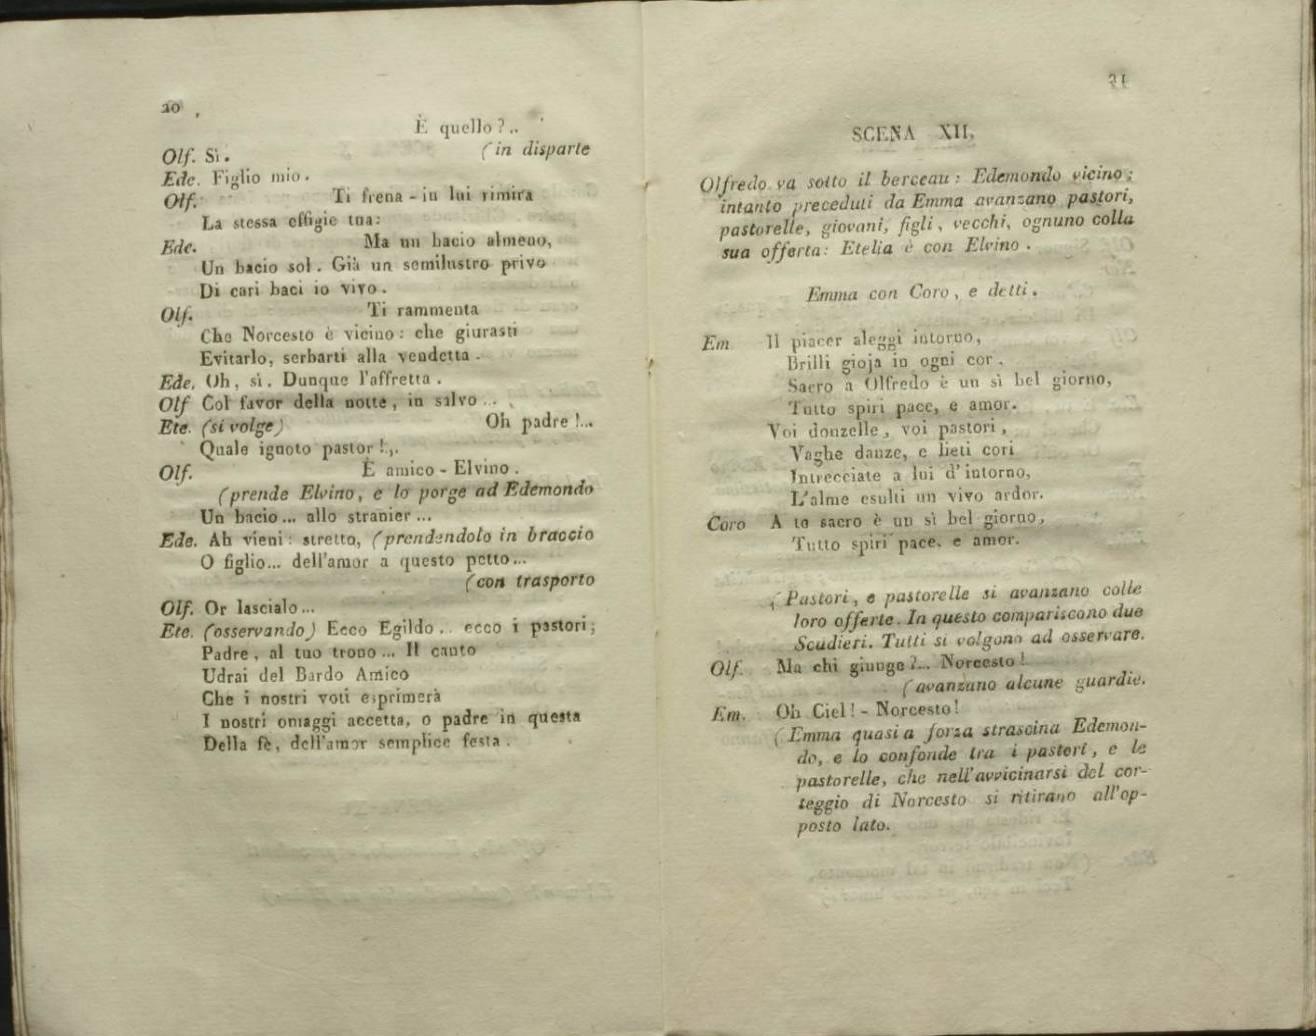 20
È quello?..
Olf. Sì. (in disparte
Ede. Figlio mio.
Olf. Ti frena - in lui rimira
La stessa effigie tua:
Ede. Ma un bacio almeno,
Un bacio sol. Già un semilustro privo
Di cari baci io vivo.
Olf. Ti rammenta
Che Norcesto è vicino: che giurasti
Evitarlo, serbarti alla vendetta.
Ede. Oh, sì. Dunque l'affretta.
Olf Col favor della notte, in salvo...
Ete. (si volge) Oh padre!...
Quale ignoto pastor!..
Olf. È amico - Elvino.
(prende Elvino, e lo porge ad Edemondo
Un bacio... allo stranier...
Ede. Ah vieni: stretto, (prendendolo in braccio
O figlio... dell'amor a questo petto...
(con trasporto
Olf. Or lascialo...
Ete. (osservando) Ecco Egildo.. ecco i pastori;
Padre, al tuo trono... Il canto
Udrai del Bardo Amico
Che i nostri voti esprimerà
I nostri omaggi accetta, o padre in questa
Della fè, dell'amor semplice festa.
21
SCENA XII.
Olfredo va sotto il berceau: Edemondo vicino;
intanto preceduti da Emma avanzano pastori,
pastorelle, giovani, figli, vecchi, ognuno colla
sua offerta: Etelia è con Elvino.
Emma con Coro, e detti.
Em Il piacer aleggi intorno,
Brilli gioja in ogni cor.
Sacro a Olfredo è un sì bel giorno,
Tutto spiri pace, e amor.
Voi donzelle, voi pastori,
Vaghe danze, e lieti cori
Intrecciate a lui d'intorno,
L'alme esulti un vivo ardor.
Coro A te sacro è un sì bel giorno,
Tutto spiri pace, e amor.
(Pastori, e pastorelle si avanzano colle
loro offerte. In questo compariscono due
Scudieri. Tutti si volgono ad osservare.
Olf. Ma chi giunge?... Norcesto!
(avanzano alcune guardie.
Em. Oh Ciel! - Norcesto!
(Emma quasi a forza strascina Edemon-
do, e lo confonde tra i pastori, e le
pastorelle, che nell'avvicinarsi del cor-
teggio di Norcesto si ritirano all'op-
posto lato.